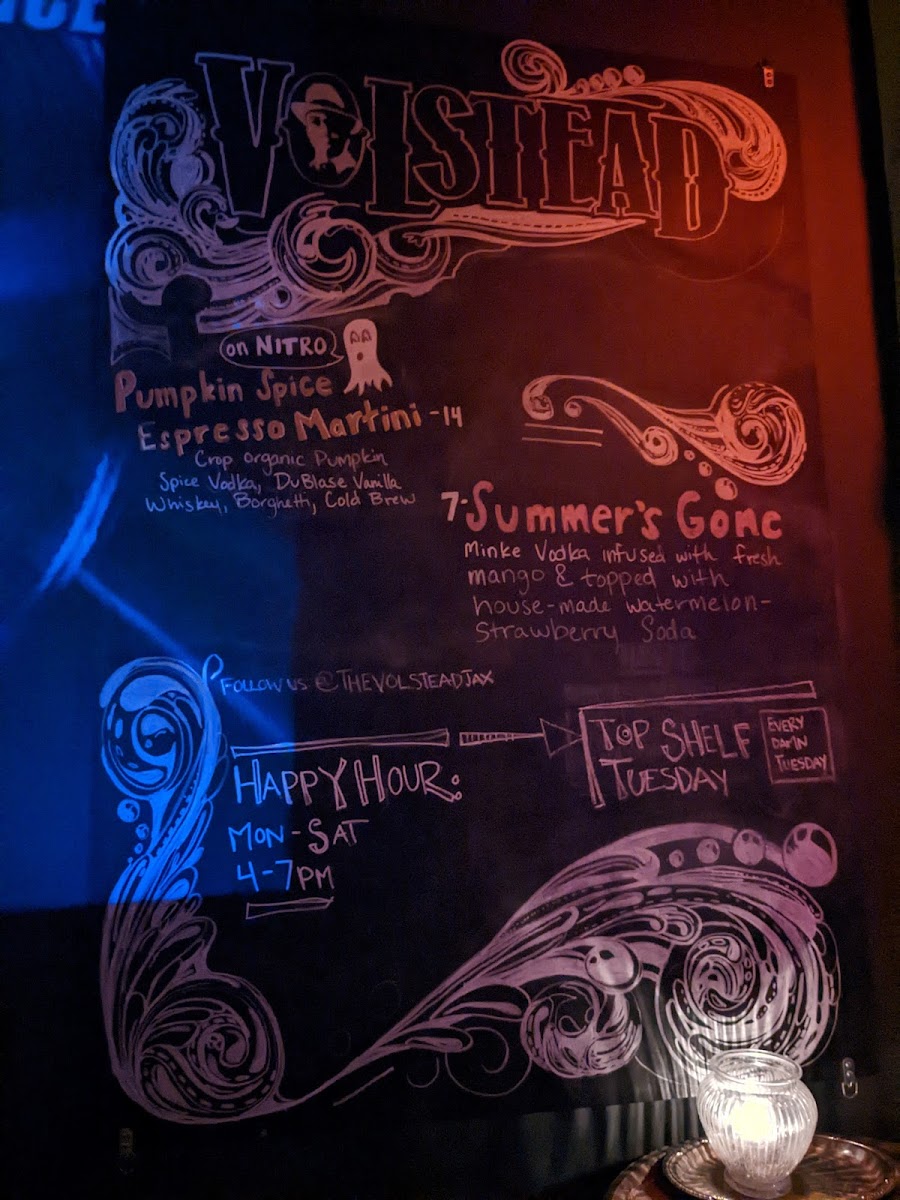 VOLSTEAD
on NITRO
Pumpkin Spice
Espresso Martini -14
Crop organic Pumpkin
Spice Vodka, DuBlase Vanilla
Whiskey, Borghetti, Cold Brew
7- Summer's Gone
Minke Vodka infused with fresh
mango & topped with
house-made watermelon-
strawberry Soda
FOLLOW US @THEVOLSTEADJAX
HAPPY HOUR:
MON-SAT
4-7PM
TOP SHELF
TUESDAY
EVERY
DAMN
TUESDAY